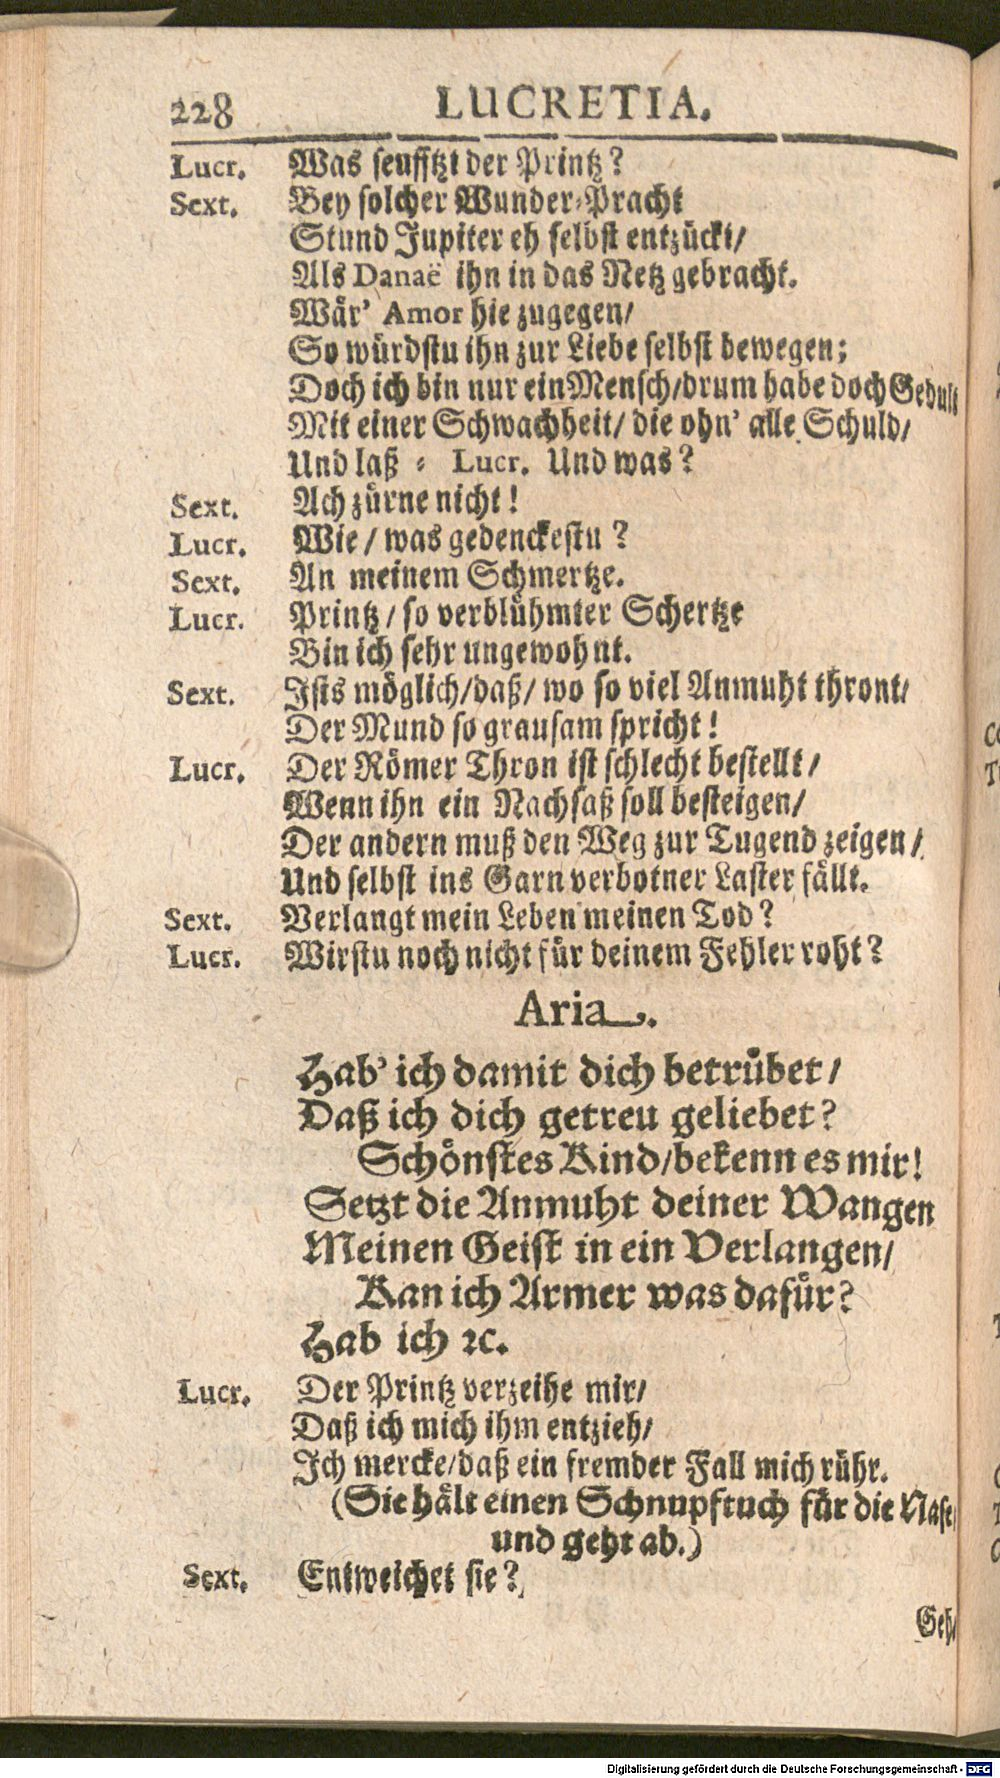 228 LUCRETIA.
Lucr. Was seufftzt der Printz?
Sext. Bey solcher Wunder-Pracht
Stund Jupiter eh selbst entzückt/
Als Danaë ihn in das Netz gebracht.
Wär' Amor hie zugegen/
So würdstu ihn zur Liebe selbst bewegen;
Doch ich bin nur ein Mensch/drum habe doch Gedult
Mit einer Schwachheit/ die ohn' alle Schuld/
Und laß - Lucr. Und was?
Sext. Ach zürne nicht!
Lucr. Wie/ was gedenckestu?
Sext. An meinem Schmertze.
Lucr. Printz/ so verblühmter Schertze
Bin ich sehr ungewohnt.
Sext. Ists möglich/daß/ wo so viel Anmuht thront/
Der Mund so grausam spricht!
Lucr. Der Römer Thron ist schlecht bestellt/
Wenn ihn ein Nachsaß soll besteigen/
Der andern muß den Weg zur Tugend zeigen/
Und selbst ins Garn verbotner Laster fällt.
Sext. Verlangt mein Leben meinen Tod?
Lucr. Wirstu noch nicht für deinem Fehler roht?
Aria.
Hab' ich damit dich betrübet/
Daß ich dich getreu geliebet?
Schönstes Kind/bekenn es mir!
Setzt die Anmuht deiner Wangen
Meinen Geist in ein Verlangen/
Kan ich Armer was dafür?
Hab ich ꝛc.
Lucr. Der Printz verzeihe mir/
Daß ich mich ihm entzieh/
Ich mercke/daß ein fremder Fall mich rühr.
(Sie hält einen Schnupftuch für die Nase/
und geht ab.)
Sext. Entweichet sie?
Geh/
Digitalisierung gefördert durch die Deutsche Forschungsgemeinschaft - DFG